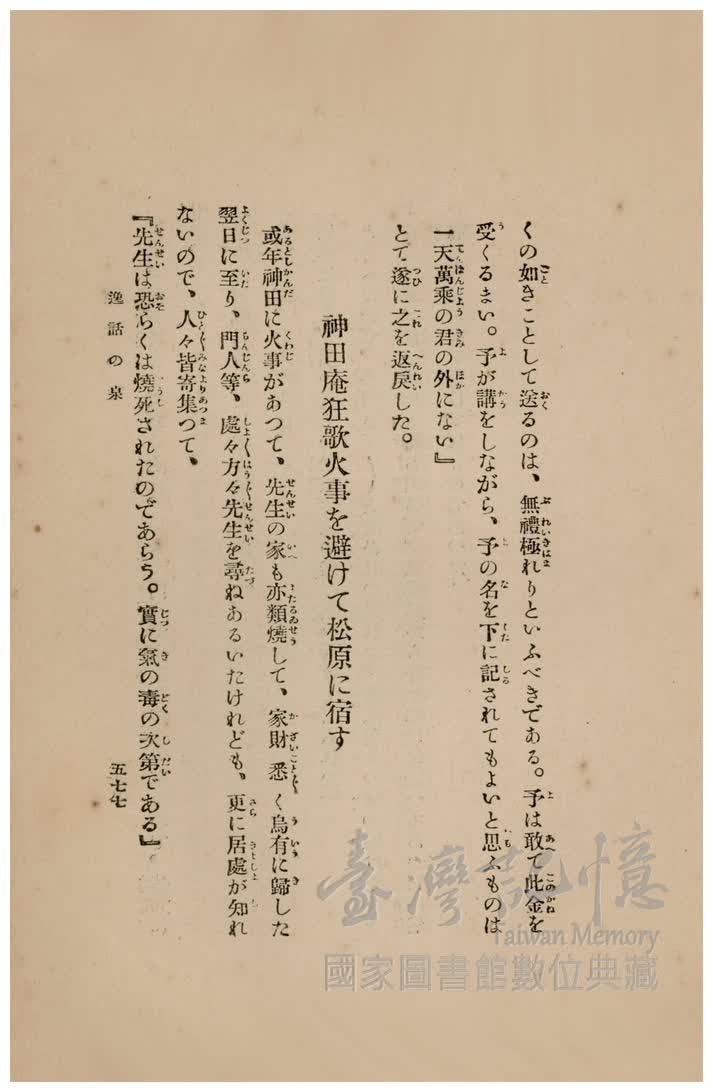 くの如きことして送るのは、無禮極れりといふべきである。予は敢て此金を
受くるまい。予が講をしながら、予の名を下に記されてもよいと思ふものは
一天萬乘の君の外にない』
とて遂に之を返戻した。
神田庵狂歌火事を避けて松原に宿す
或年神田に火事があつて、先生の家も亦類燒して、家財悉く烏有に歸した
翌日に至り、門人等、處々方々先生を尋ねあるいたけれども、更に居處が知れ
ないので、人々皆寄集つて、
『先生は恐らくは燒死されたのであらう。實に氣の毒の次第である』
逸話の泉
五七七
臺灣記憶
Taiwan Memory
國家圖書館數位典藏